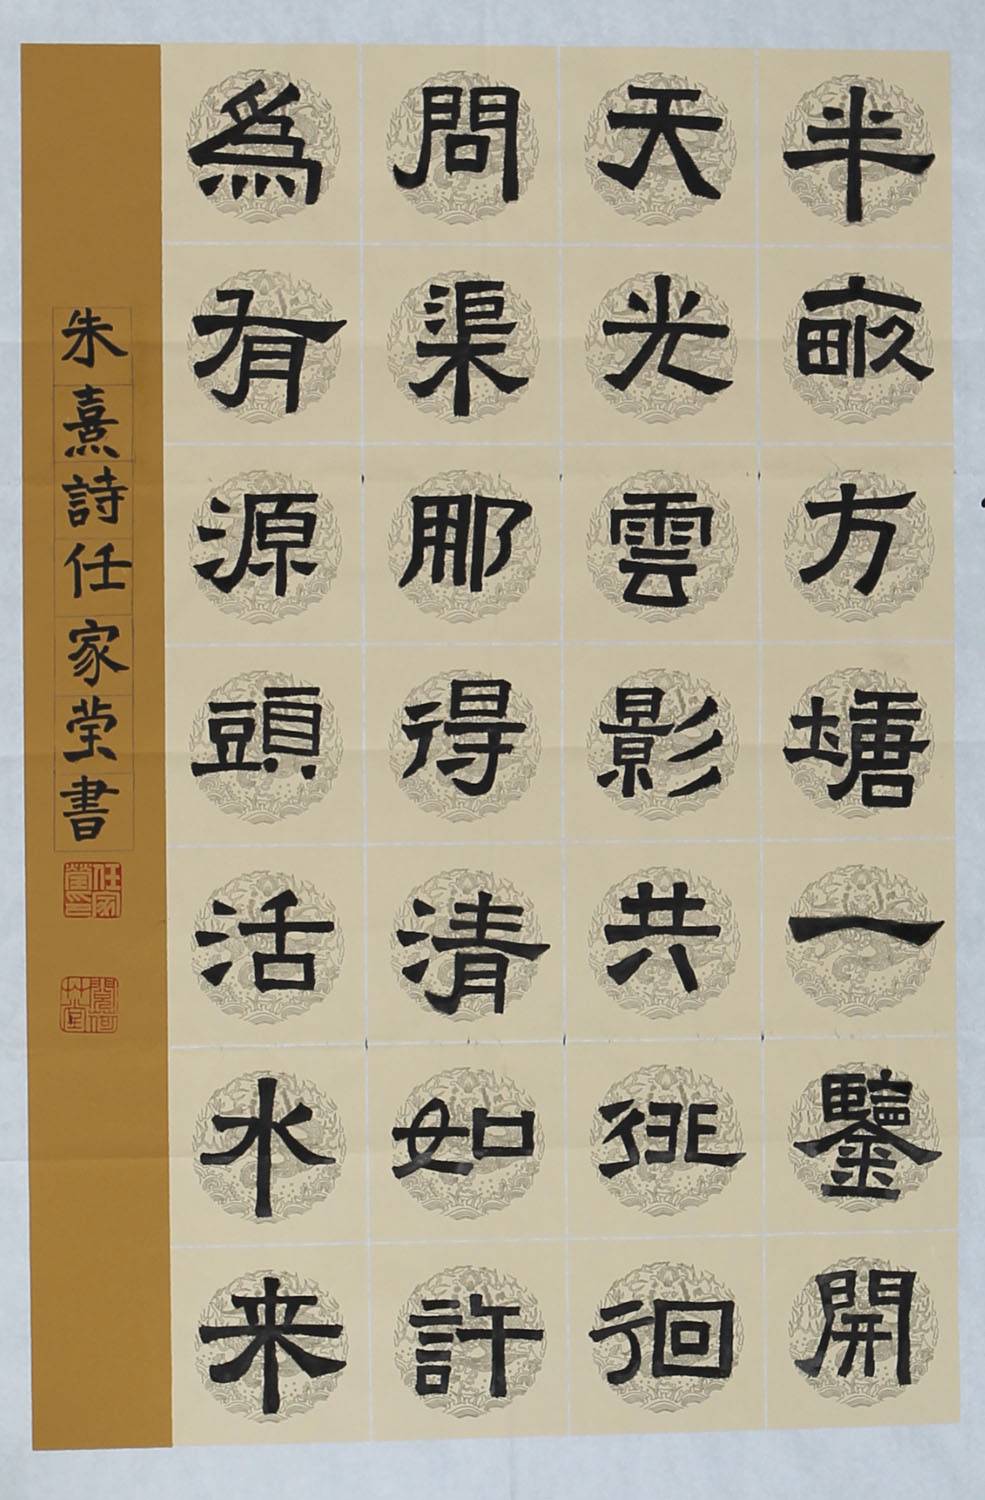 半畝方塘一鑒開
天光雲影共徘徊
問渠那得清如許
為有源頭活水来
朱熹詩任家莹書